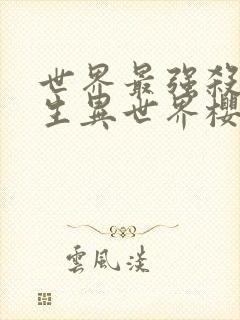 世界最強殺
生異世界櫻
雲風淡